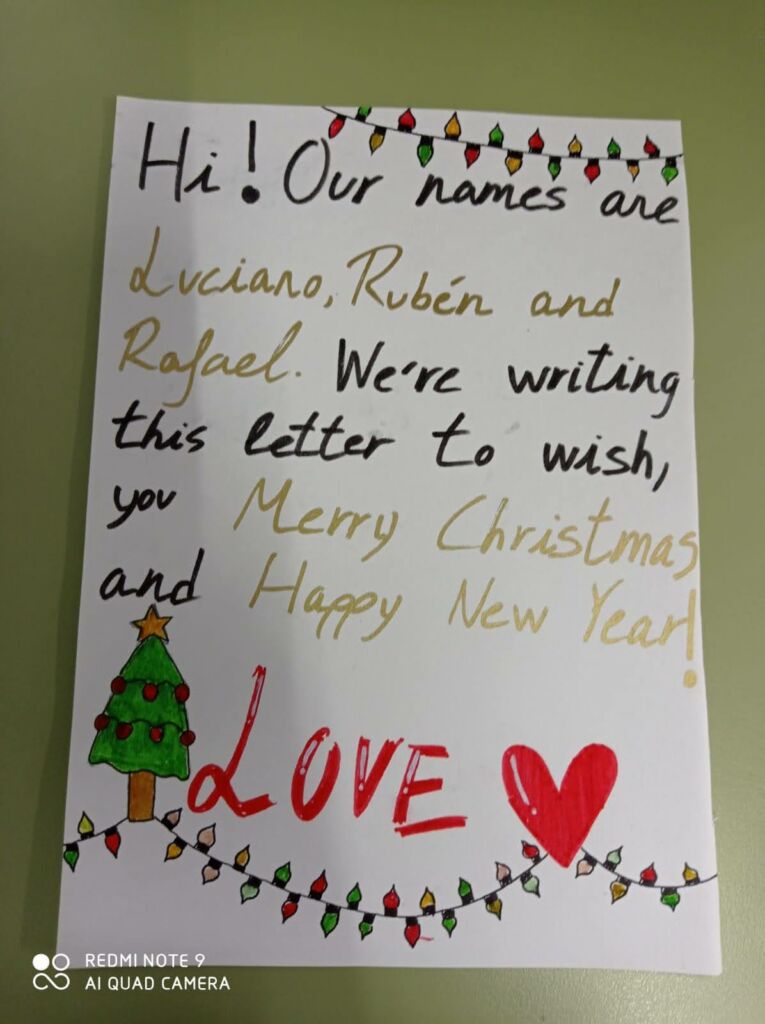 Hi! Our names are
Luciano, Rubén and
Rafael. We're writing
this letter to wish,
you Merry Christmas
and Happy New Year!
LOVE
REDMI NOTE 9
AI QUAD CAMERA